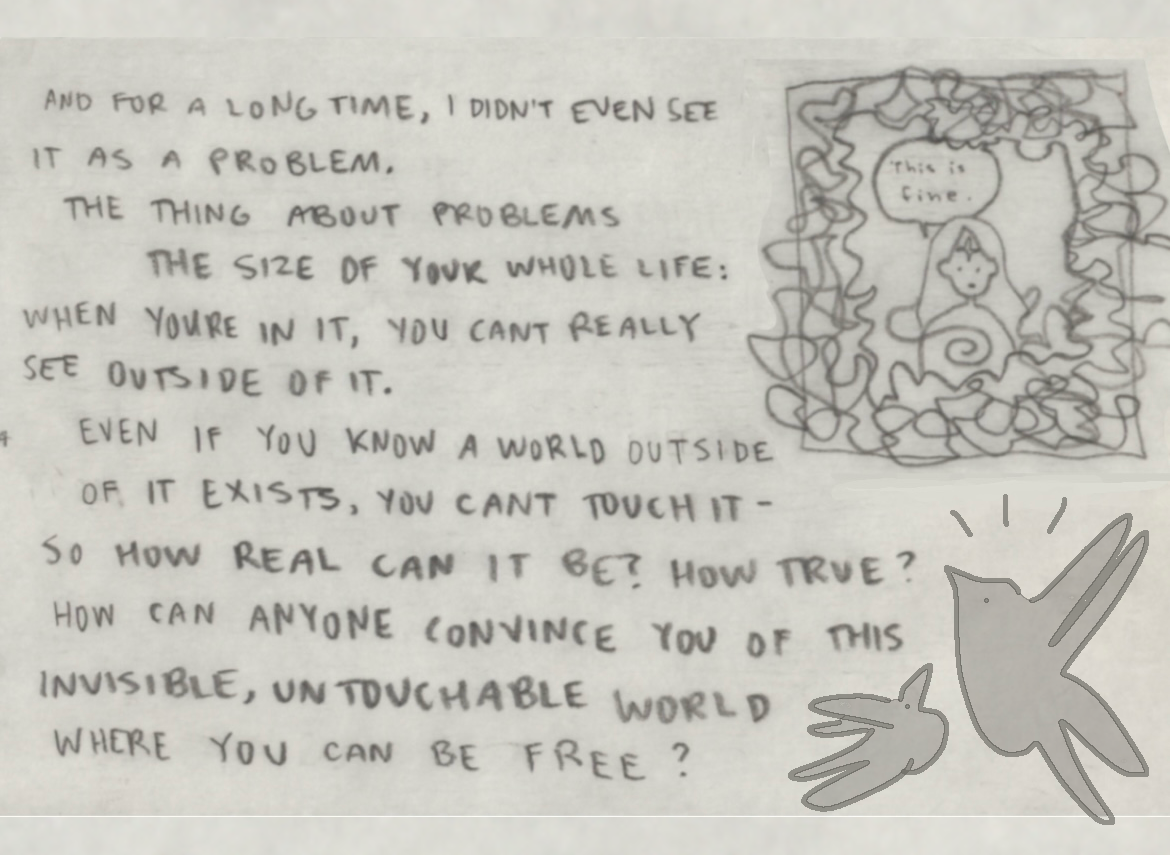 AND FOR A LONG TIME, I DIDN'T EVEN SEE
IT AS A PROBLEM.
THE THING ABOUT PROBLEMS
THE SIZE OF YOUR WHOLE LIFE:
WHEN YOURE IN IT, YOU CANT REALLY
SEE OUTSIDE OF IT.
EVEN IF YOU KNOW A WORLD OUTSIDE
OF IT EXISTS, YOU CANT TOUCH IT -
SO HOW REAL CAN IT BE? HOW TRUE?
HOW CAN ANYONE CONVINCE YOU OF THIS
INVISIBLE, UNTOUCHABLE WORLD
WHERE YOU CAN BE FREE?
This is
fine.